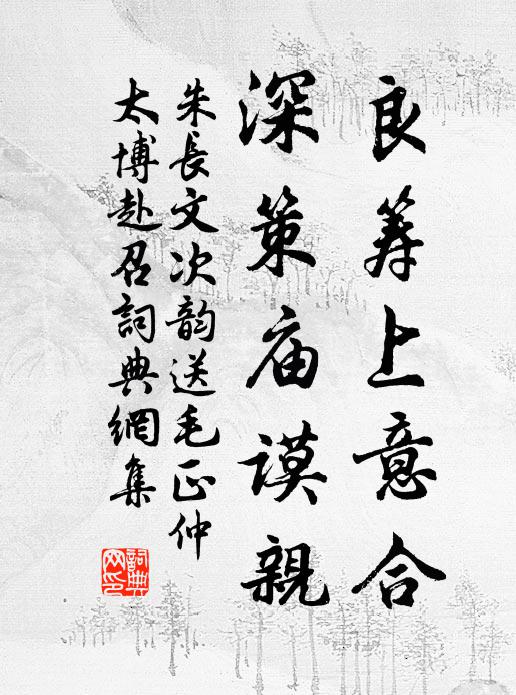 良筹上意合
深策庙谟親
朱長文次韵送毛正仲
太博赴召詞典網集
詞典网印